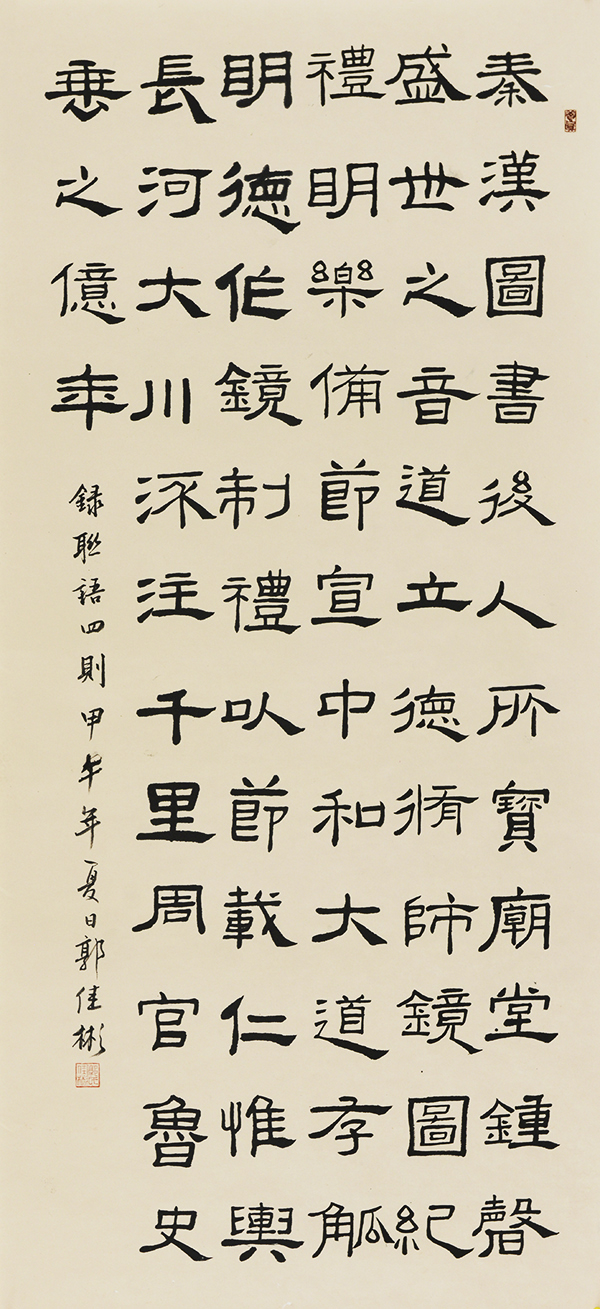 秦漢圖書後人所寶廟堂鍾磬
盛世之音道立德脩師鏡圖紀
禮明樂備節宣中和大道存觚
明德作鏡制禮以節載仁惟輿
長河大川流注千里周官魯史
垂之億年
録聯語四則甲午年夏日郭佳彬